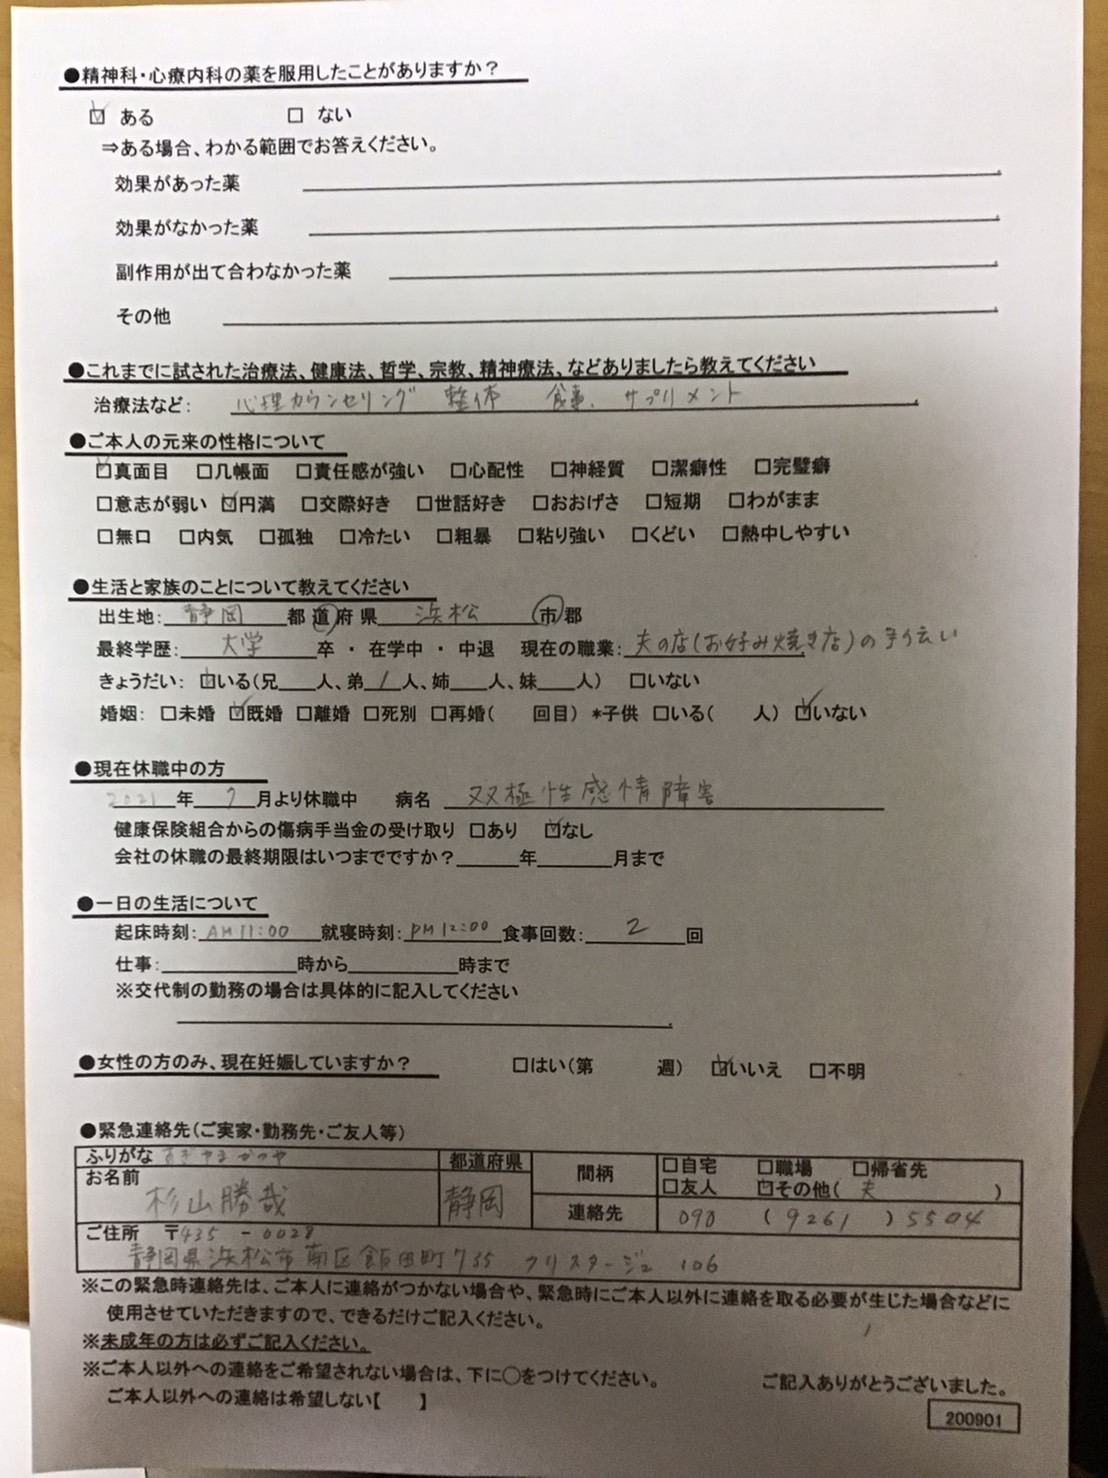 ●精神科・心療内科の薬を服用したことがありますか？
☑ ある　□ ない
⇒ある場合、わかる範囲でお答えください。
効果があった薬
効果がなかった薬
副作用が出て合わなかった薬
その他
●これまでに試された治療法、健康法、哲学、宗教、精神療法、などありましたら教えてください
治療法など： 心理カウンセリング　整体　食事、サプリメント
●ご本人の元来の性格について
☑真面目　□几帳面　□責任感が強い　□心配性　□神経質　□潔癖性　□完璧癖
□意志が弱い　☑円満　□交際好き　□世話好き　□おおげさ　□短期　□わがまま
□無口　□内気　□孤独　□冷たい　□粗暴　□粘り強い　□くどい　□熱中しやすい
●生活と家族のことについて教えてください
出生地： 静岡 都 道 府 県 浜松 市 郡
最終学歴： 大学 卒 ・ 在学中 ・ 中退　現在の職業： 夫の店(お好み焼き店)の手伝い
きょうだい： ☑いる（兄＿＿人、弟 1 人、姉＿＿人、妹＿＿人）　□いない
婚姻： □未婚 ☑既婚 □離婚 □死別 □再婚（　　回目） *子供 □いる（　　人） ☑いない
●現在休職中の方
2021 年 7 月より休職中　病名 双極性感情障害
健康保険組合からの傷病手当金の受け取り □あり ☑なし
会社の休職の最終期限はいつまでですか？＿＿＿年＿＿＿月まで
●一日の生活について
起床時刻： AM 11:00 就寝時刻： PM 12:00 食事回数： 2 回
仕事：＿＿＿＿時から＿＿＿＿時まで
※交代制の勤務の場合は具体的に記入してください
●女性の方のみ、現在妊娠していますか？　□はい（第　　　週）　☑いいえ　□不明
●緊急連絡先（ご実家・勤務先・ご友人等）
ふりがな すぎやま かつや
お名前 杉山勝哉
都道府県 静岡
間柄 □自宅　□職場　□帰省先
□友人　☑その他（ 夫 ）
連絡先 090 （ 9261 ） 5504
ご住所 〒435 - 0028
静岡県浜松市南区飯田町735 クリスタージュ 106
※この緊急時連絡先は、ご本人に連絡がつかない場合や、緊急時にご本人以外に連絡を取る必要が生じた場合などに
使用させていただきますので、できるだけご記入ください。
※未成年の方は必ずご記入ください。
※ご本人以外への連絡をご希望されない場合は、下に○をつけてください。
ご本人以外への連絡は希望しない【　　】
ご記入ありがとうございました。
200901